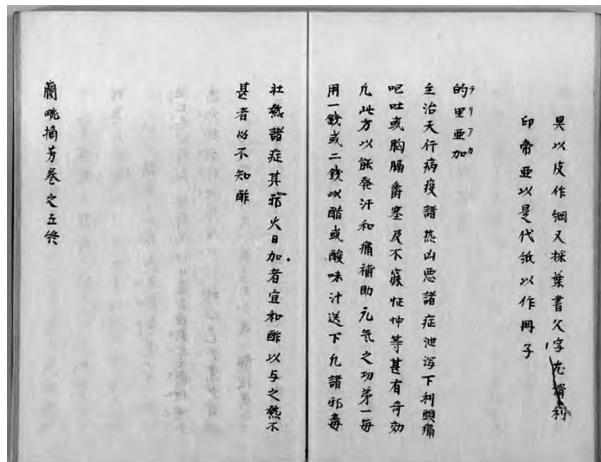 具以皮作綱又採葉書父字尤揩利
印帝亜以是代紙以作冊子
的里亜加
テリアカ
主治天行病疫諸熱凶悪諸症泄瀉下利頭痛
呕吐或胸膈欝塞及不寐怔忡等甚有奇効
凡此方以能発汗和痛補助元気之功第一毎
用一銭或二銭以醋或酸味汁送下凡諸邪毒
壮熱諸症其邪火日加者宜和酢以与之熱不
甚者必不知酢
蘭畹摘芳巻之五終